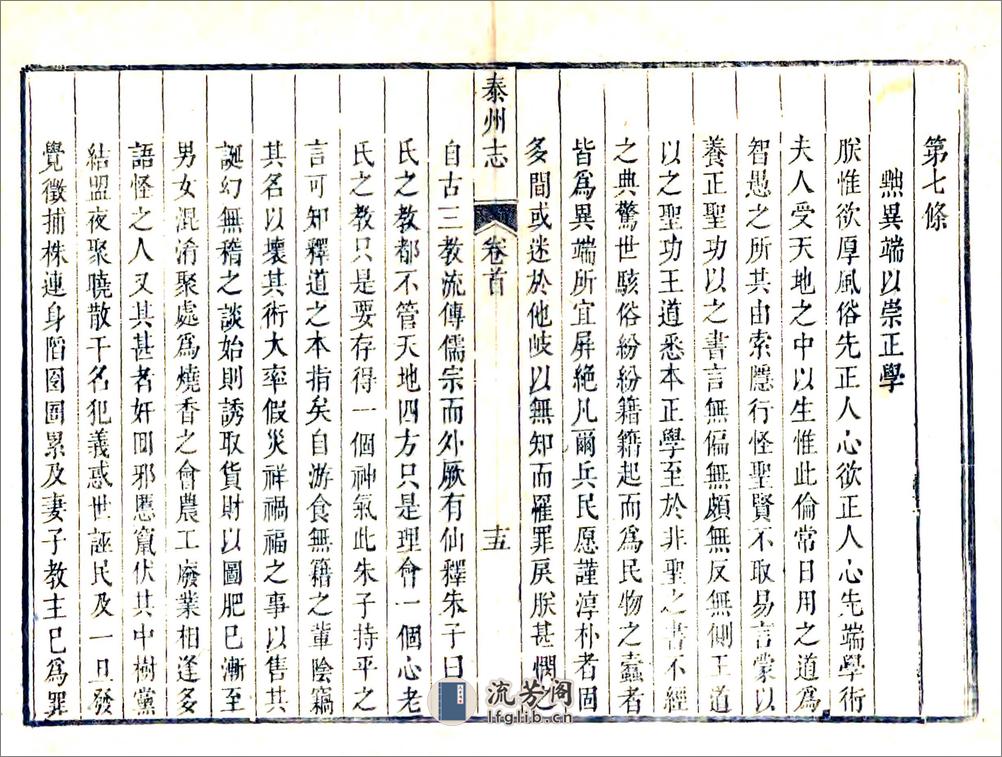 第七條
黜異端以崇正學
朕惟欲厚風俗先正人心欲正人心先端學術
夫人受天地之中以生惟此倫常日用之道為
智愚之所共由索隱行怪聖賢不取易言蒙以
養正聖功以之書言無偏無頗無反無側王道
以之聖功王道悉本正學至於非聖之書不經
之典驚世駭俗紛紛藉藉起而為民物之蠹者
皆爲異端所宜屏絕凡爾兵民愿謹淳朴者固
多間或迷於他岐以無知而罹罪戾朕甚憫
泰州志
卷首
十五
自古三教流傳儒宗而外厥有仙釋朱子曰釋
氏之教都不管天地四方只是理會一個心老
氏之教只是要存得一個神氣此朱子持平之
言可知釋道之本指矣自游食無籍之輩陰竊
其名以壞其術大率假災祥禍福之事以售其
誕幻無稽之談始則誘取貨財以圖肥己漸至
男女混淆聚處爲燒香之會農工廢業相逢多
語怪之人又其甚者奸回邪慝竄伏其中樹黨
結盟夜聚曉散干名犯義惑世誣民及一旦發
覺徵捕株連身陷囹圄累及妻子教主已爲罪
流芳阁
lfglib.cn